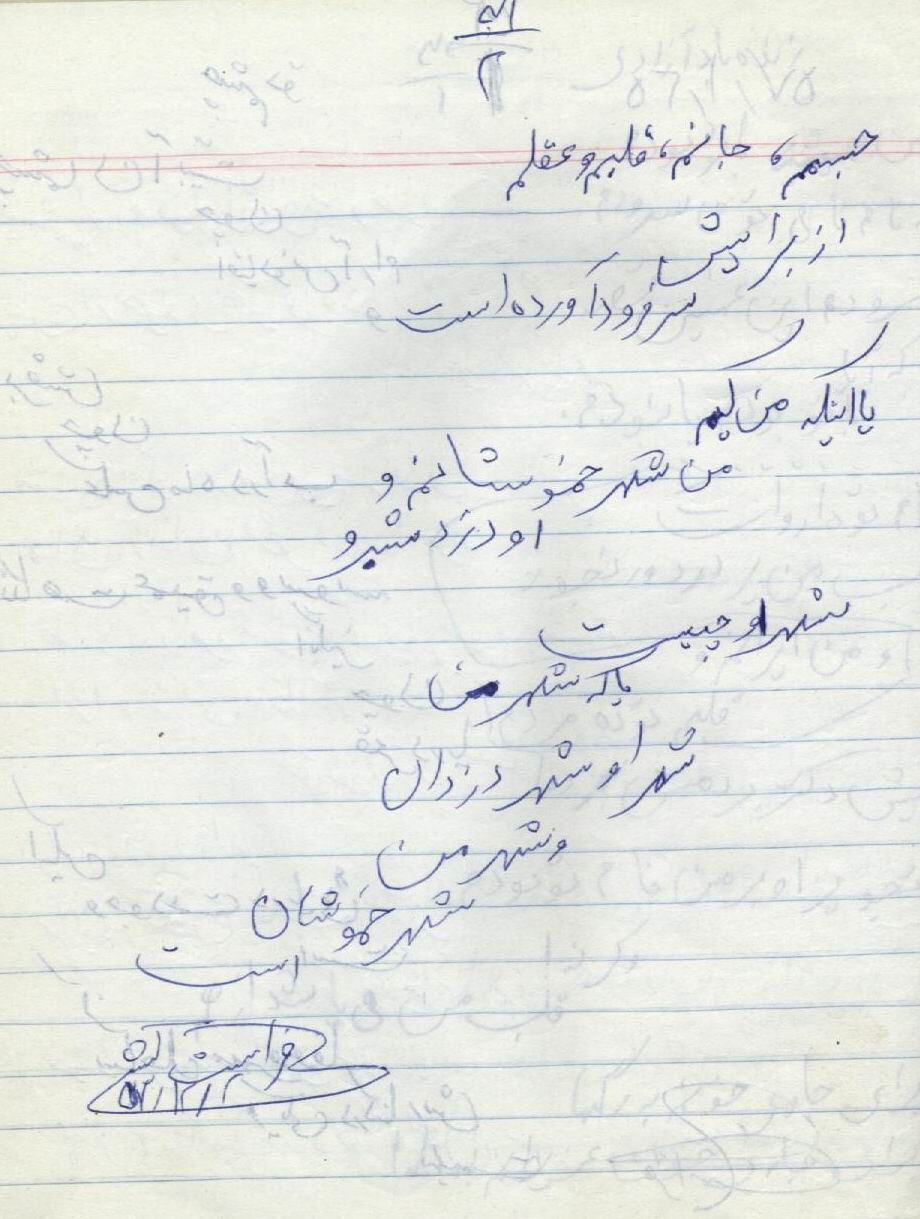 ۲
جسمم، جانم، قلبم و عقلم
از برایش
سر فرود آورده است
یا اینکه من کیم
من شهر خموشانم و
او دزد شبرو
شهر او چیست
یا که شهر من
شهر او شهر دزدان
و شهر من
شهر خموشان
است